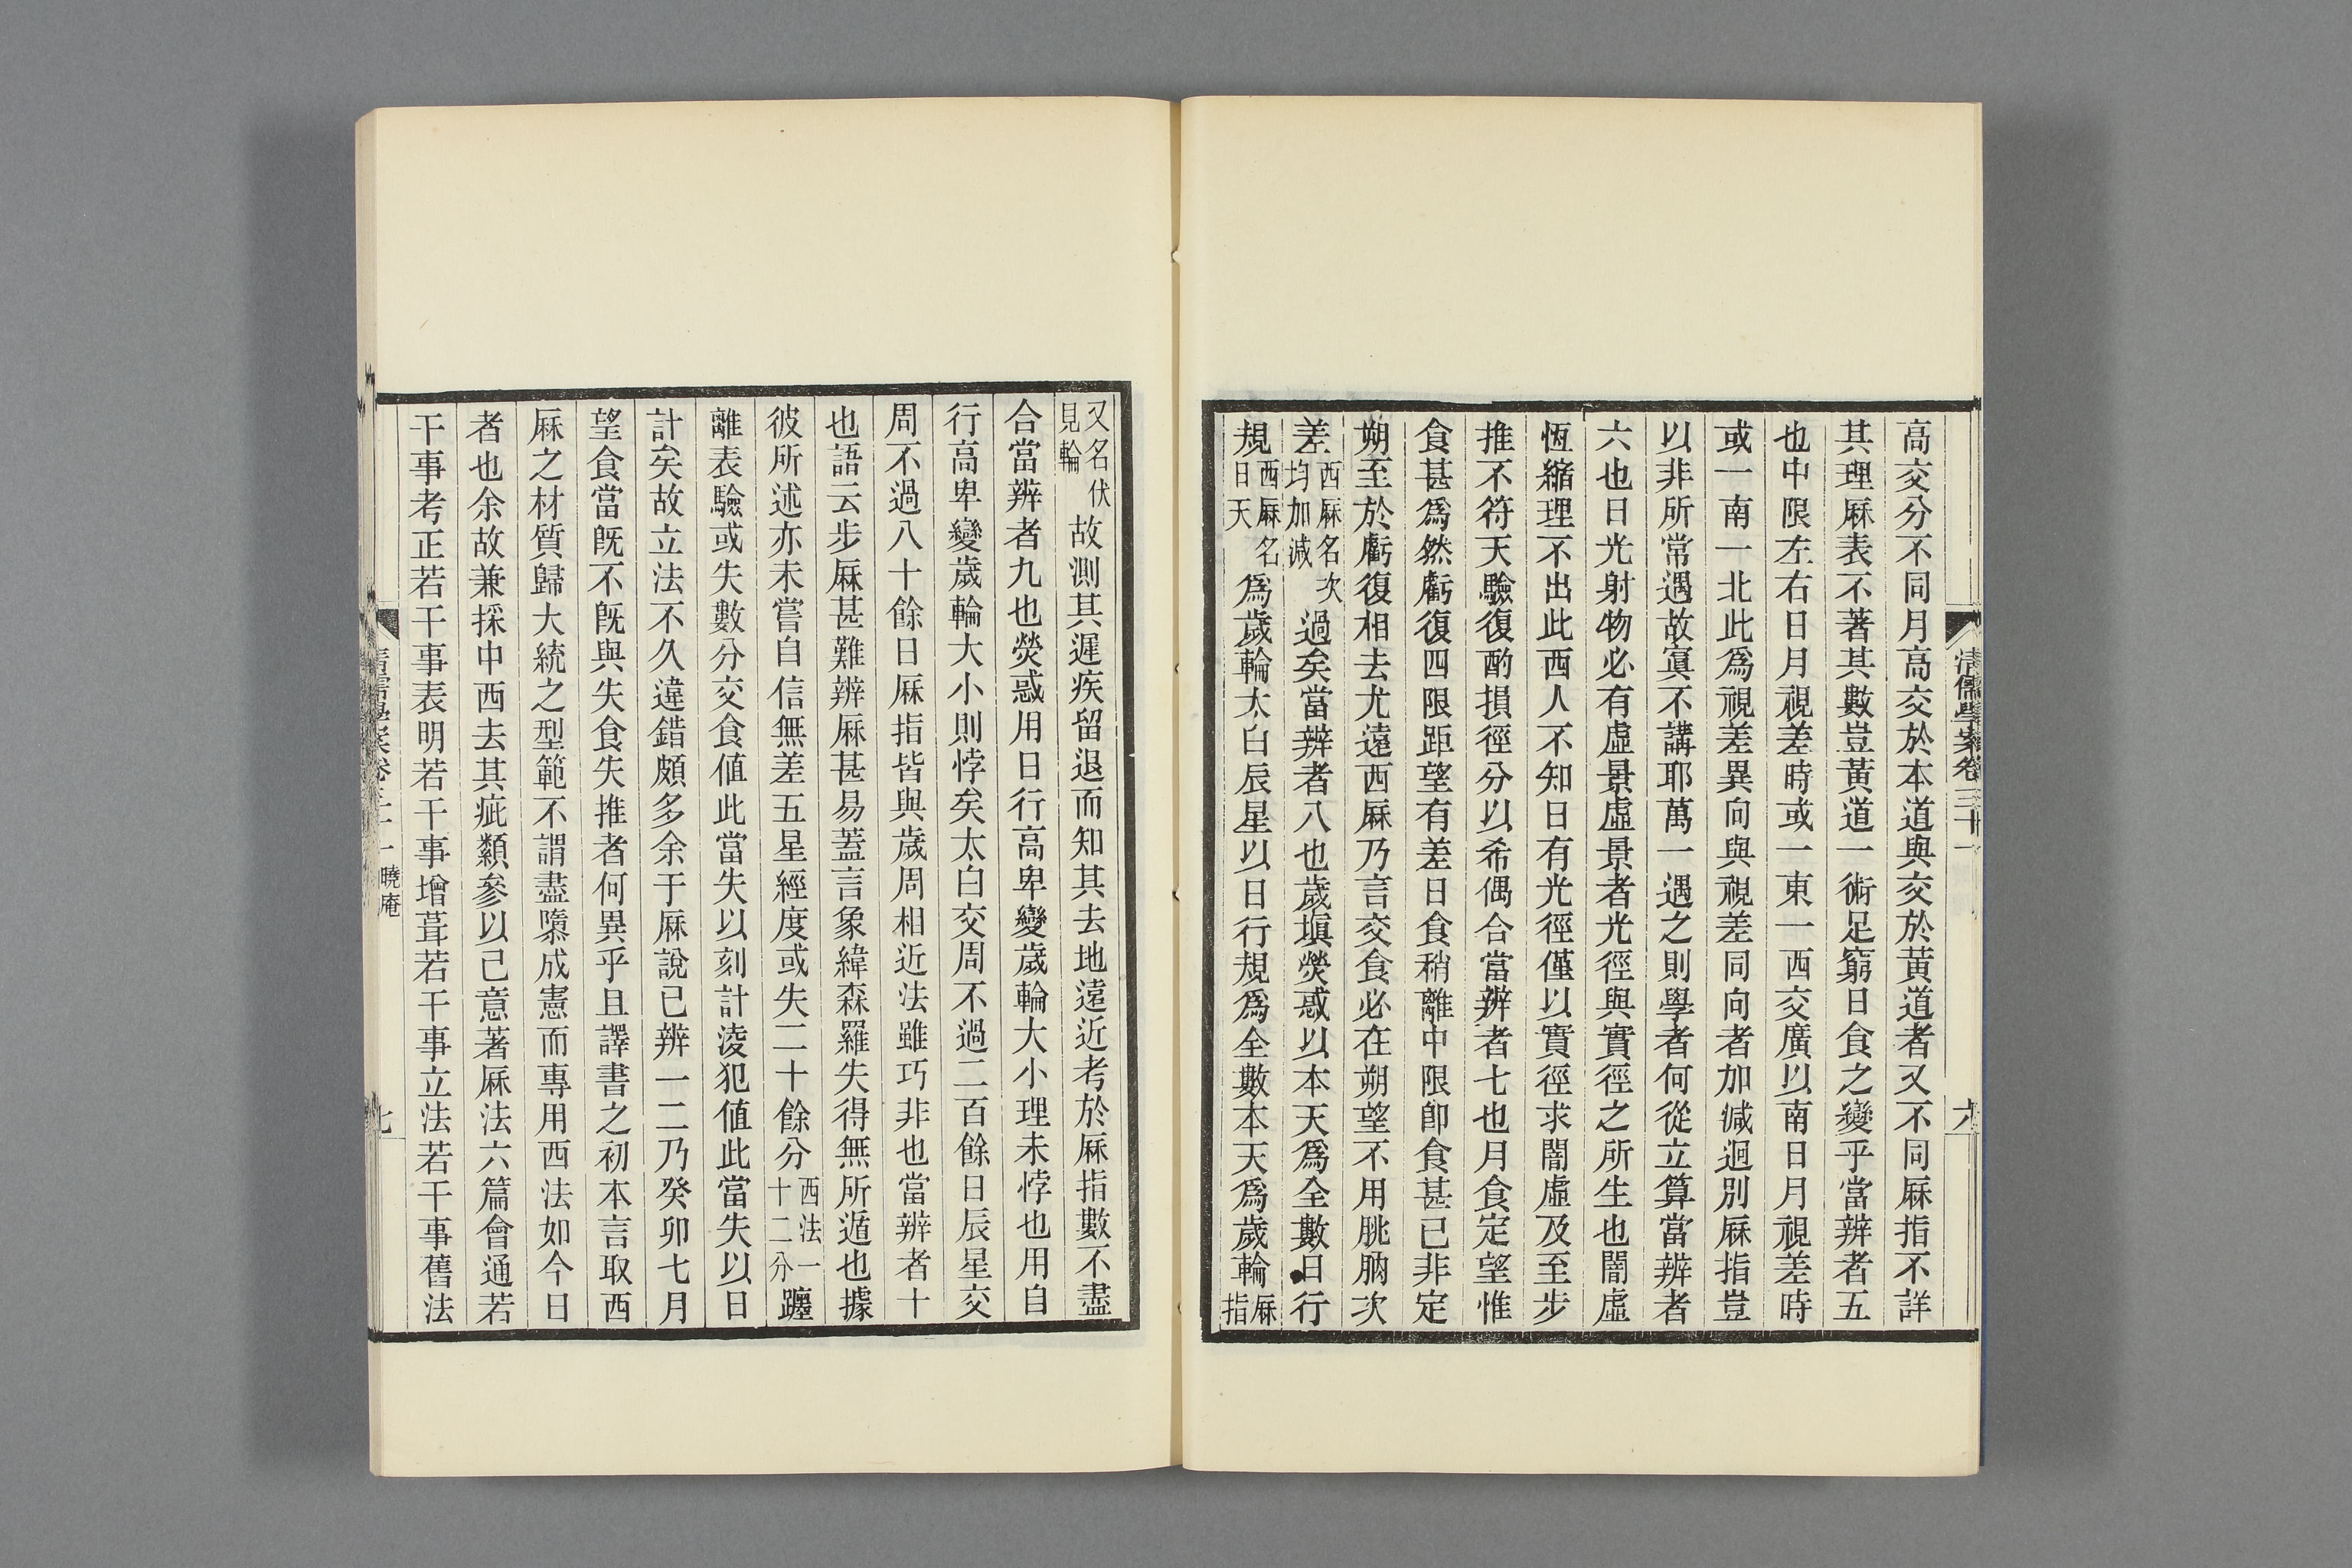 清儒學案卷三十一
六
高交分不同月高交於本道與交於黃道者又不同厤指不詳
其理厤表不著其數豈黃道一術足窮日食之變乎當辨者五
也中限左右日月視差時或一東一西交廣以南日月視差時
或一南一北此爲視差異向與視差同向者加減迥別厤指豈
以非所常遇故寘不講耶萬一遇之則學者何從立算當辨者
六也日光射物必有虛景虛景者光徑與實徑之所生也闇虛
恆縮理不出此西人不知日有光徑僅以實徑求闇虛及至步
推不符天驗復酌損徑分以希偶合當辨者七也月食定望惟
食甚爲然虧復四限距望有差日食稍離中限卽食甚已非定
朔至於虧復相去尤遠西厤乃言交食必在朔望不用朓朒次
差西厤名次均加減過矣當辨者八也歲塡熒惑以本天爲全數日行
規西厤名日天爲歲輪太白辰星以日行規爲全數本天爲歲輪厤指
又名伏見輪故測其遲疾留退而知其去地遠近考於厤指數不盡
合當辨者九也熒惑用日行高卑變歲輪大小理未悖也用自
行高卑變歲輪大小則悖矣太白交周不過二百餘日辰星交
周不過八十餘日厤指皆與歲周相近法雖巧非也當辨者十
也語云步厤甚難辨厤甚易蓋言象緯森羅失得無所遁也據
彼所述亦未嘗自信無差五星經度或失二十餘分西法一十二分躔
離表驗或失數分交食値此當失以刻計淩犯値此當失以日
計矣故立法不久違錯頗多余于厤說已辨一二乃癸卯七月
望食當旣不旣與失食失推者何異乎且譯書之初本言取西
厤之材質歸大統之型範不謂盡隳成憲而專用西法如今日
者也余故兼採中西去其疵纇參以己意著厤法六篇會通若
干事考正若干事表明若干事增葺若干事立法若干事舊法
清儒學案卷三十一 曉庵
七